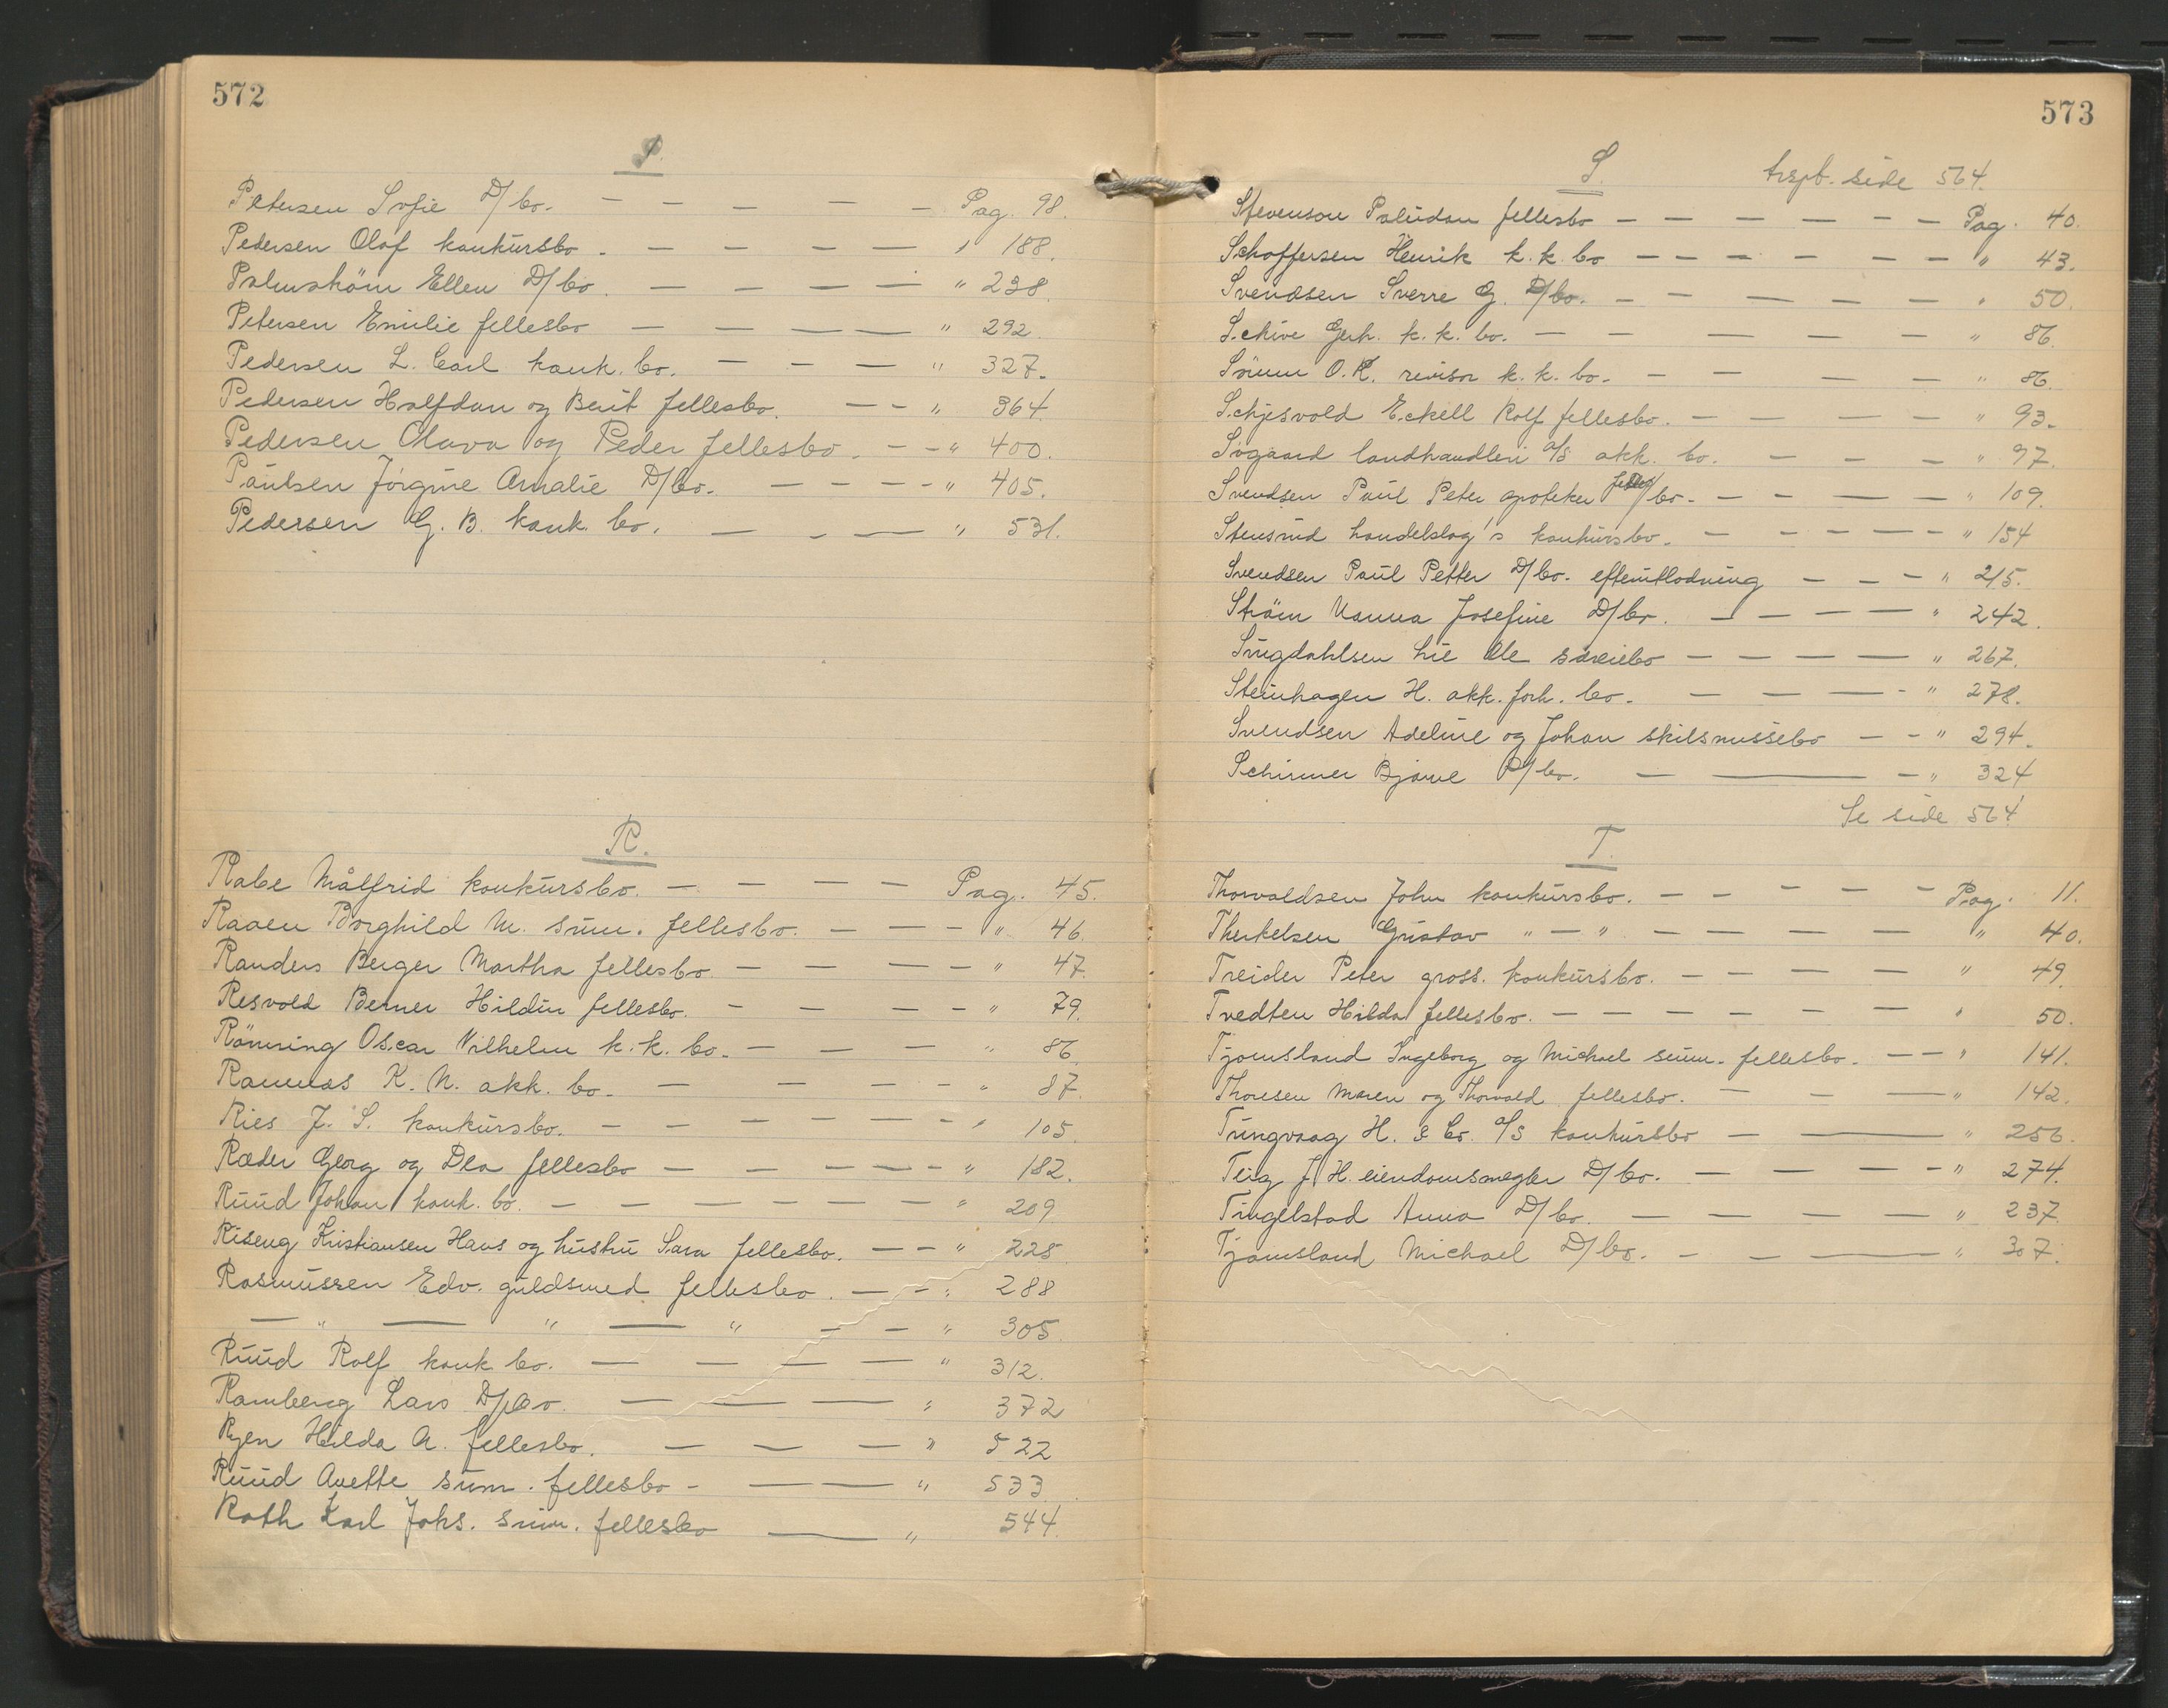 572
P.
Petersen Sofie D/bo. — — — — — Pag. 98.
Pedersen Olaf konkursbo. — — — — " 188.
Palmström Ellen D/bo. — — — — " 238.
Petersen Emilie fellesbo — — — — " 292.
Pedersen L. Carl konk. bo. — — — " 327.
Pedersen Halfdan og Berit fellesbo. — — " 364
Pedersen Olava og Peder fellesbo. — — " 400.
Paulsen Jörgine Amalie D/bo. — — — — " 405.
Pedersen G. B. konk. bo. — — — " 531.
R.
Rabe Målfrid konkursbo. — — — — Pag. 45.
Raaen Borghild M. sum. fellesbo. — — — " 46.
Randers Berger Martha fellesbo — — — — " 47.
Resvold Berner Hildur fellesbo. — — — — " 79.
Rönning Oscar Wilhelm k. k. bo. — — — " 86
Ramnas K. N. akk. bo. — — — — " 87.
Ries J. S. konkursbo. — — — — — " 105.
Ræder Georg og Dea fellesbo — — — — — " 182.
Ruud Johan konk. bo. — — — — — " 209
Riseng Kristiansen Hans og hustru Sara fellesbo. — — " 225
Rasmussen Edv. guldsmed fellesbo. — — " 288
— " — " — " — — " 305.
Ruud Rolf konk bo. — — — — " 312.
Ramberg Lars D/bo. — — — " 372
Ryen Hilda A. fellesbo. — — — " 522
Ruud Anette sum. fellesbo — — — " 533
Roth Karl Johs. sum. fellesbo — " 544.
573
S. side 564.
Stevenson Paludan fellesbo — — — — — — — Pag. 40.
Schoffersen Henrik k. k. bo — — — — — — " 43.
Svendsen Sverre G. D/bo. — — — — — — " 50.
Schive Gerh. k. k. bo. — — — — — " 86.
Sörum O. K. revisor k. k. bo. — — — — " 86.
Schjesvold Eckell Rolf fellesbo. — — — — — " 93.
Sogaard landhandleri A/S akk. bo. — — — " 97.
Svendsen Paul Peter apoteker felles/bo. — — — — " 109.
Stensrud handelslag's konkursbo. — — — — — " 154
Svendsen Paul Petter D/bo. efterutlodning — — — " 215.
Ström Nanna Josefine D/bo. — — — — " 242.
Sugdahlsen Lie Ole særeiebo — — — — " 267.
Steinhagen H. akk. forh. bo. — — — - " 278.
Svendsen Adeline og Johan skilsmissebo — — " 294.
Schirmer Bjarne D/bo. — — — " 324
Se side 564
T.
Thorvaldsen John konkursbo. — — — — — Pag. 11.
Therkelsen Gustav " — " — — — — — " 40.
Treider Peter gross. konkursbo. — — — — " 49.
Tvedten Hilda fellesbo. — — — — — — — " 50.
Tjomsland Ingeborg og Michael sum. fellesbo. — — " 141.
Thoresen Maren og Thorvald fellesbo. — — — " 142.
Tungvaag H. & Co. A/S konkursbo — — " 256.
Teig J. H. eiendomsmegler D/bo. — — — — " 274.
Tingelstad Anna D/bo. — — — — " 237.
Tjomsland Michael D/bo. — — — " 307.